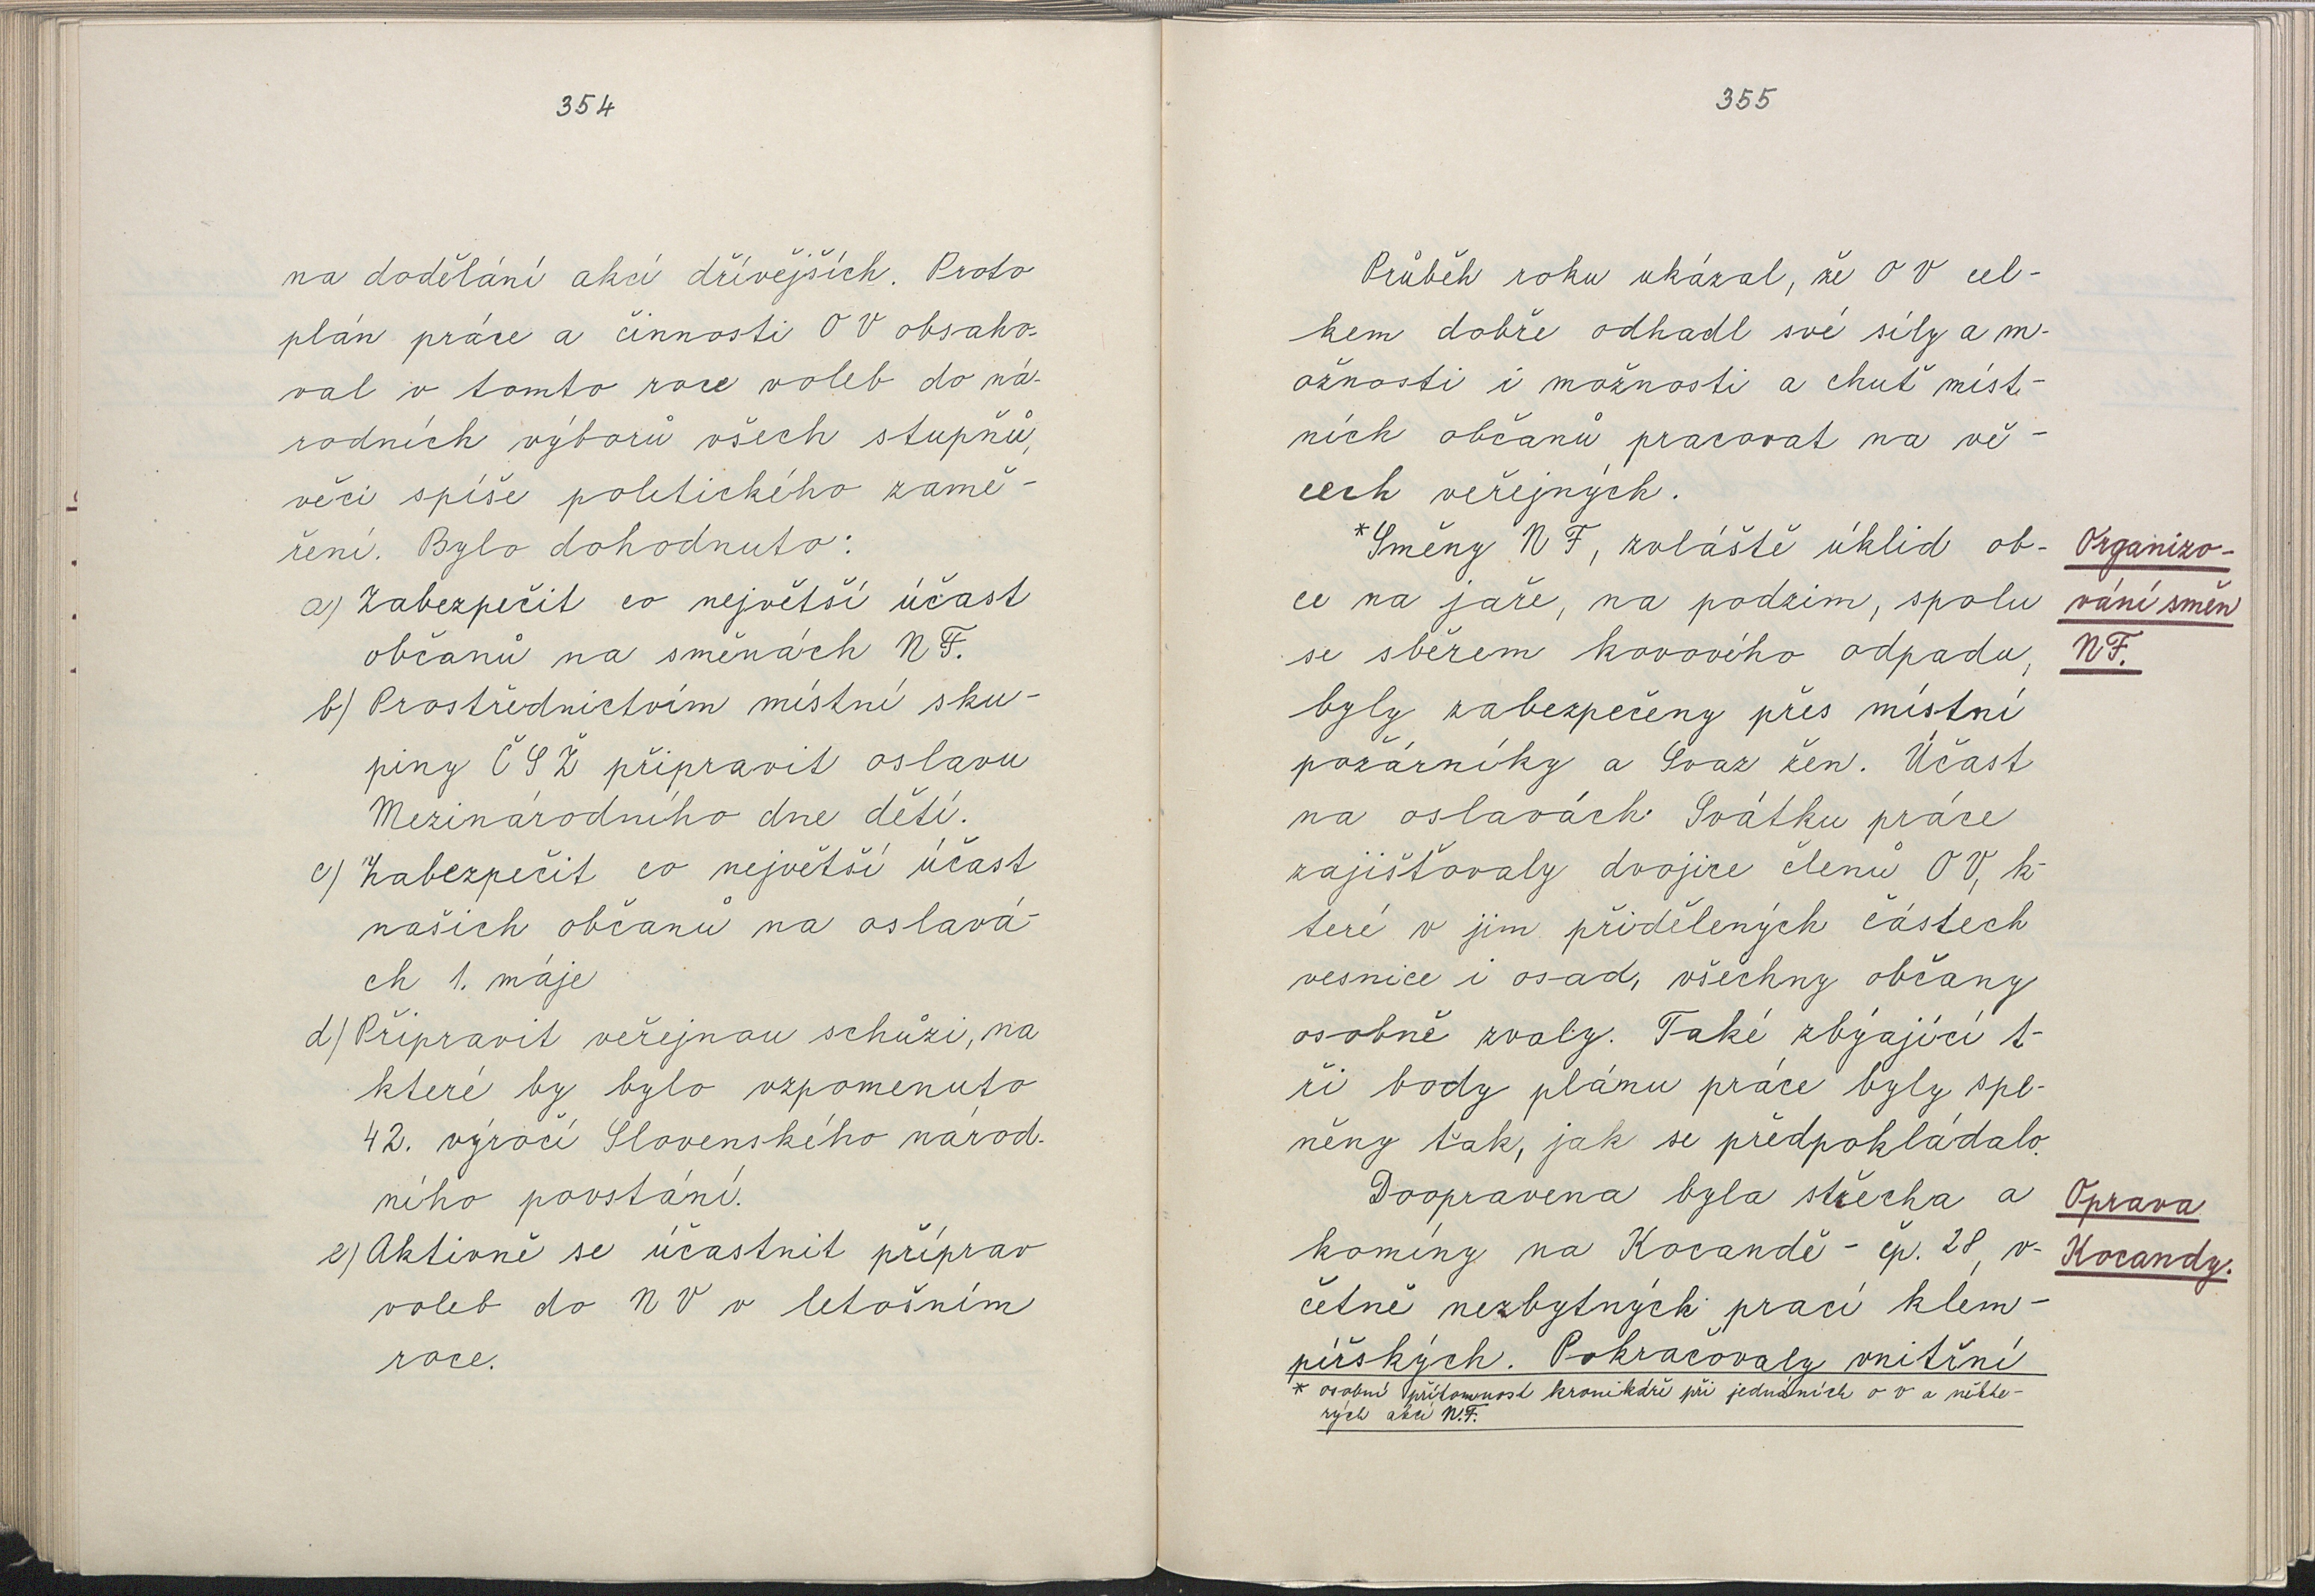 354
na dodělání akcí dřívějších. Proto
plán práce a činnosti OV obsaho-
val v tomto roce voleb do ná-
rodních výborů všech stupňů,
věci spíše politického zamě-
ření. Bylo dohodnuto:
a) Zabezpečit co největší účast
občanů na směnách NF.
b) Prostřednictvím místní sku-
piny ČSŽ připravit oslavu
Mezinárodního dne dětí.
c) Zabezpečit co největší účast
našich občanů na oslavá-
ch 1. máje
d) Připravit veřejnou schůzi, na
které by bylo vzpomenuto
42. výročí Slovenského národ-
ního povstání.
e) Aktivně se účastnit příprav
voleb do NV v letošním
roce.
355
Průběh roku ukázal, že OV cel-
kem dobře odhadl své síly a m-
ožnosti i možnosti a chuť míst-
ních občanů pracovat na vě-
cech veřejných.
*Směny NF, zvláště úklid ob-
ce na jaře, na podzim, spolu
se sběrem kovového odpadu,
byly zabezpečeny přes místní
požárníky a Svaz žen. Účast
na oslavách Svátku práce
zajišťovaly dvojice členů OV, k-
teré v jim přidělených částech
vesnice i osad, všechny občany
osobně zvaly. Také zbýající t-
ři body plánu práce byly spl-
něny tak, jak se předpokládalo.
Doopravena byla střecha a
komíny na Kocandě - čp. 28, v-
četně nezbytných prací klem-
pířských. Pokračovaly vnitřní
* osobní přítomnost kronikáře při jednáních o v a někte-
rých akcí N.F.
Organizo-
vání směn
NF.
Oprava
Kocandy.